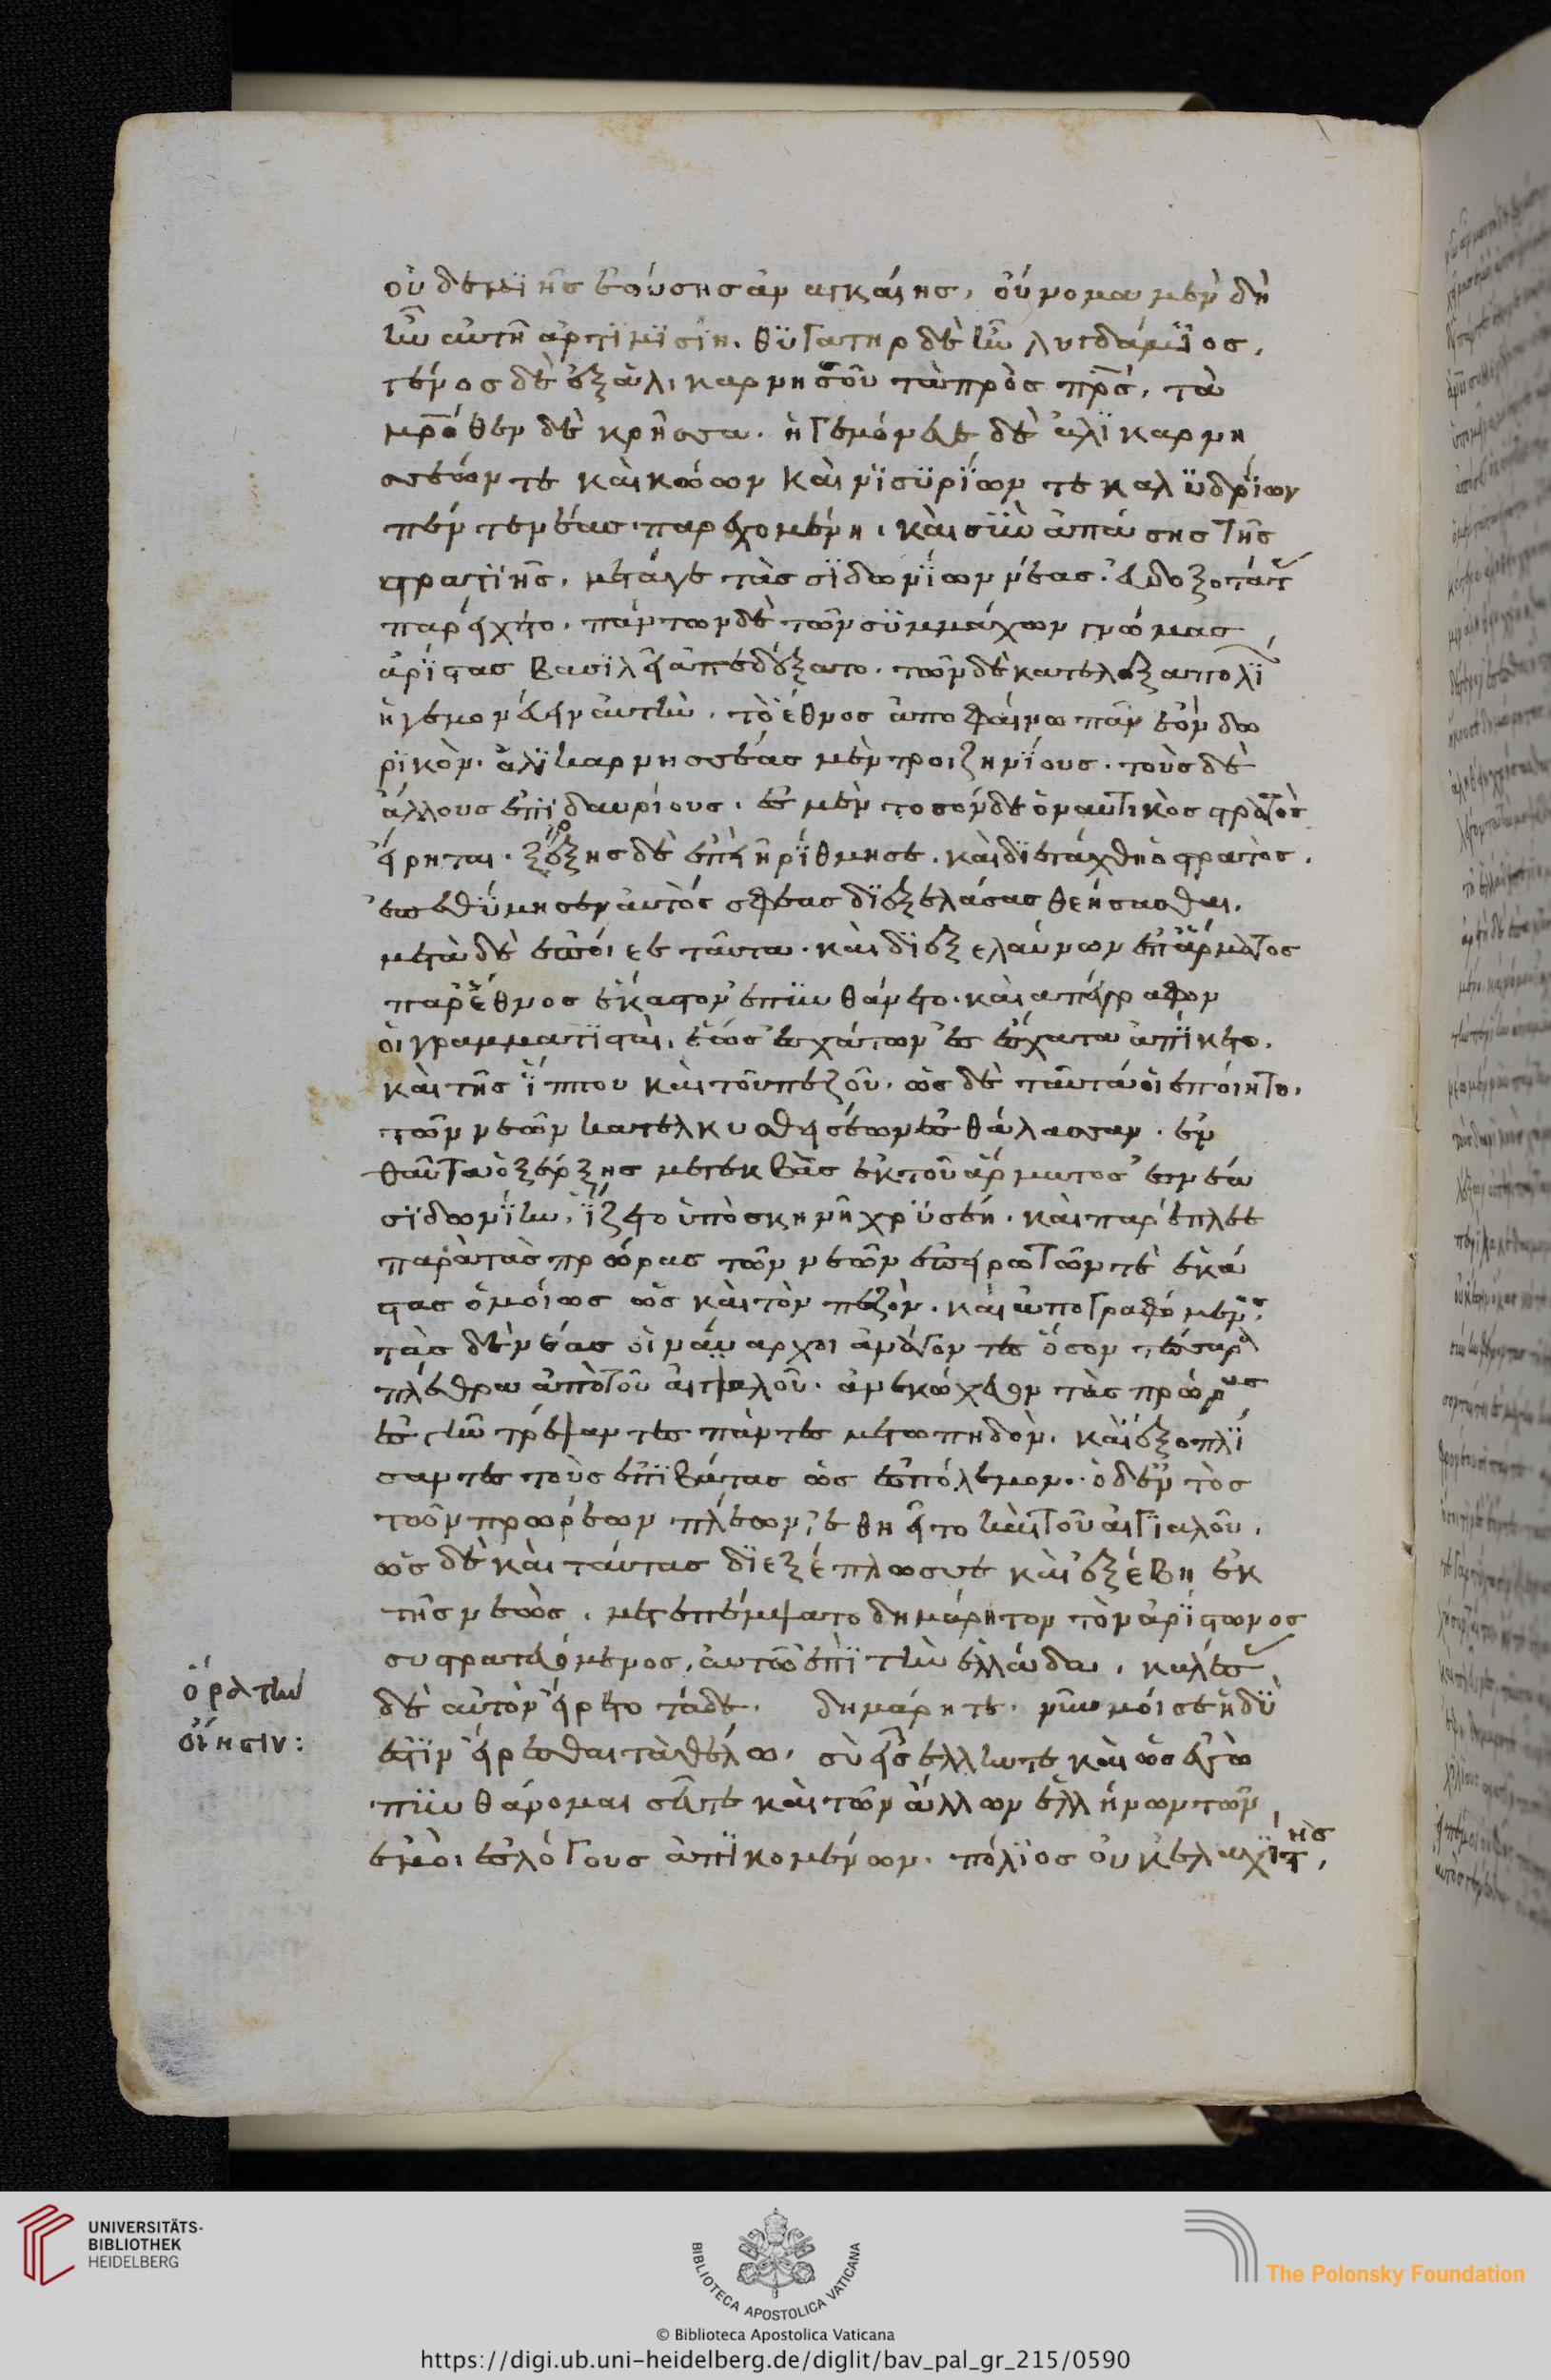 οὐδεμιῆς ἐούσης ἀναγκαίης, οὔνομα μὲν δὴ
ἦν αὐτῆ ἀρτιμισίη. θυγάτηρ δὲ ἦν λυγδάμιος,
γένος δὲ ἐξ ἁλικαρνησοῦ τὰ πρὸς πρς, τὰ
μρόθεν δὲ κρῆσσα. ἡγεμόνευε δὲ ἁλικαρνη
σσέων τε καὶ κώων καὶ νισυρίων τε καλυδρίων
πέντε νέας παρεχομένη. καὶ συνἁπάσης τῆς
στρατιῆς, μετάγε τὰς σιδωνίων νέας. εὐδοξοτάτ
παρείχετο. πάντων δὲ τῶν συμμάχων γνώμας
ἀρίστας βασιλεῖ ἀπεδέξατο. τῶν δὲ κατέλεξα πολί
ἡγεμονεύειν αὐτὴν, τὸ ἔθνος ἀποφαίνω πᾶν ἐὸν δω
ρικὸν. ἁλικαρνησσέας μὲν τροιζηνίους. τοὺς δὲ
ἄλλους ἐπιδαυρίους. ἐς μὲν τοσόνδε ὁ ναυτικὸς στρατὸς
εἴρηται. ξέρξης δὲ ἐπεὶ ἠρίθμησε. καὶ διετάχθη ὁ στρατὸς.
ἐπεθύμησεν αὐτός σφεας διεξελάσας θεήσασθαι.
μετὰ δὲ ἐποίεε ταῦτα. καὶ διεξελαύνων ἐπἅρματος
παρἔθνος ἕκαστον ἐπυνθάνετο. καὶ ἀπέγραφον
οἱ γραμματισταὶ, ἕως ἐσχάτων ἐς ἔσχατα ἀπίκετο.
καὶ τῆς ἵππου καὶ τοῦ πεζοῦ. ὡς δὲ ταῦτά οἱ ἐποίητο.
τῶν νεῶν κατελκυσθεισέων ἐς θάλασσαν. ἐν
θαῦτα ὁ ξέρξης μετεκβὰς ἐκ τοῦ ἅρματος ἐς νέα
σιδωνίην, ἵζετο ὑπὸ σκηνῆ χρυσέη. καὶ παρέπλεε
παρὰ τὰς πρώρας τῶν νεῶν ἐπειρωτῶν τὲ ἑκά
στας ὁμοίως ὡς καὶ τὸν πεζὸν. καὶ ἀπογραφόμενος.
τὰς δὲ νέας οἱ ναύαρχοι ἀναγον τες ὅσον τέσσερα
πλέθρα ἀπὸ τοῦ αἰγιαλοῦ. ἀνεκώχευον τὰς πρώρας
ἐς γῆν τρέψαντες πάντες μετωπηδὸν. καὶ ἐξοπλί
σαντες τοὺς ἐπιβάτας ὡς ἐς πόλεμον. ὁ δἐντὸς
τῶν πρωρέων πλέων, ἐθηεῖτο καὶ τοῦ αἰγιαλοῦ.
ὡς δὲ καὶ ταύτας διεξέπλωσε καὶ ἐξέβη ἐκ
τῆς νεὼς, μετεπέμψατο δημάρητον τὸν ἀρίστωνος
συστρατευόμενος, αὐτῶ ἐπὶ τὴν ἑλλάδα, καλέσ
δὲ αὐτὸν εἴρετο τάδε. δημάρητε. νῦν μοί σε ἡδύ
ἐστιν εἴρεσθαι τὰ θέλω. σὺ εἶς ἕλλην τε καὶ ὡς ἐγὼ
πυνθάνομαι σεῦ τε καὶ τῶν ἄλλων ἑλλήνων τῶν
ἐμοὶ ἐς λόγους ἀπικομένων. πόλιος οὐκ ἐλαχίστης,
ὅρα τὴν
οἴησιν:
UNIVERSITÄTS-
BIBLIOTHEK
HEIDELBERG
BIBLIOTECA APOSTOLICA VATICANA
The Polonsky Foundation
© Biblioteca Apostolica Vaticana
https://digi.ub.uni-heidelberg.de/diglit/bav_pal_gr_215/0590